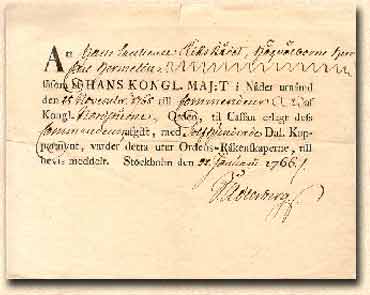 At Hans Excellence Riks Rådet, Högvälborne Herr
Carl Hermelin
såsom af HANS KONGL. MAJ:T i Nåder utnämd
den 25 Novembr. 1765 till Commendeur af
Kongl. Orden, til Cassan erlagt dess
Commendeurs afgift, med Dal. Kop-
parmynt, varder detta utur Ordens-Räkenskaperne, till
bevis meddelt. Stockholm den Januarii 1766.